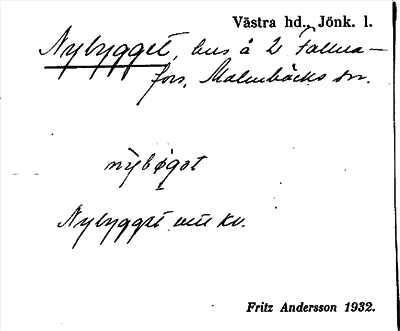 Västra hd., Jönk. l.
Nybygget, hus å 2 Fallna-
fors, Malmbäcks sn.
nybøgot
Nybygget utu kv.
Fritz Andersson 1932.